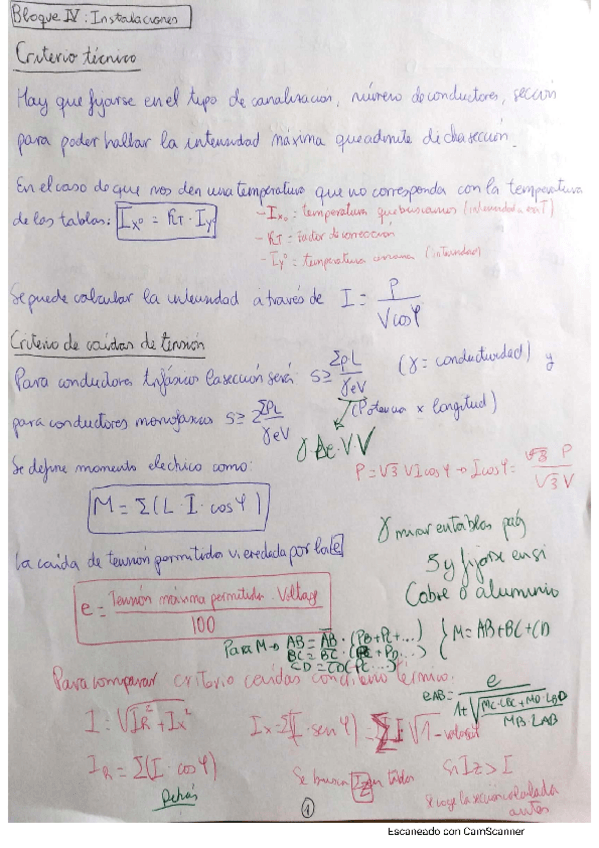 Bloque IV: Instalaciones
Criterio técnico
Hay que fijarse en el tipo de canalizacion, número de conductores, sección
para poder hallar la intensidad máxima que admite dicha sección.
En el caso de que nos den una temperatura que no corresponda con la temperatura
de las tablas: Ix° = KT · Iy°
- Ix° : temperatura que buscamos (intensidad a esa T)
- KT : factor de corrección
- Iy° : temperatura cercana (intensidad)
Se puede calcular la intensidad a través de I = P / V cos φ
Criterio de caídas de tensión
Para conductores trifásicos la sección será S ≥ ΣPL / γeV (γ = conductividad) y
para conductores monofásicos S ≥ 2 ΣPL / γeV (Potencia x longitud)
γ · Δe · V · V
Se define momento eléctrico como:
P = √3 V I cos φ → I cos φ = P / √3 V
M = Σ(L · I · cos φ)
γ mirar en tablas pág
5 y fijarse en si
Cobre o aluminio
La caída de tensión permitida viene dada por la e
e = Tensión máxima permitida · Voltaje / 100
Para M → AB = AB · (PB + PC + ...)
BC = BC · (PC + PD ...)
CD = CD (PC ...)
M = AB + BC + CD
Para comparar criterio caídas con criterio térmico:
eAB = e / 1 + √ MC · LBC + MD · LBD / MB · LAB
I = √IR² + Ix²
Ix = Σ(I · sen φ) = Σ I √1 -
IR = Σ(I · cos φ)
Se busca Iz en tablas
Si Iz > I
Se coge la sección calculada
antes
Detrás
1
Escaneado con CamScanner